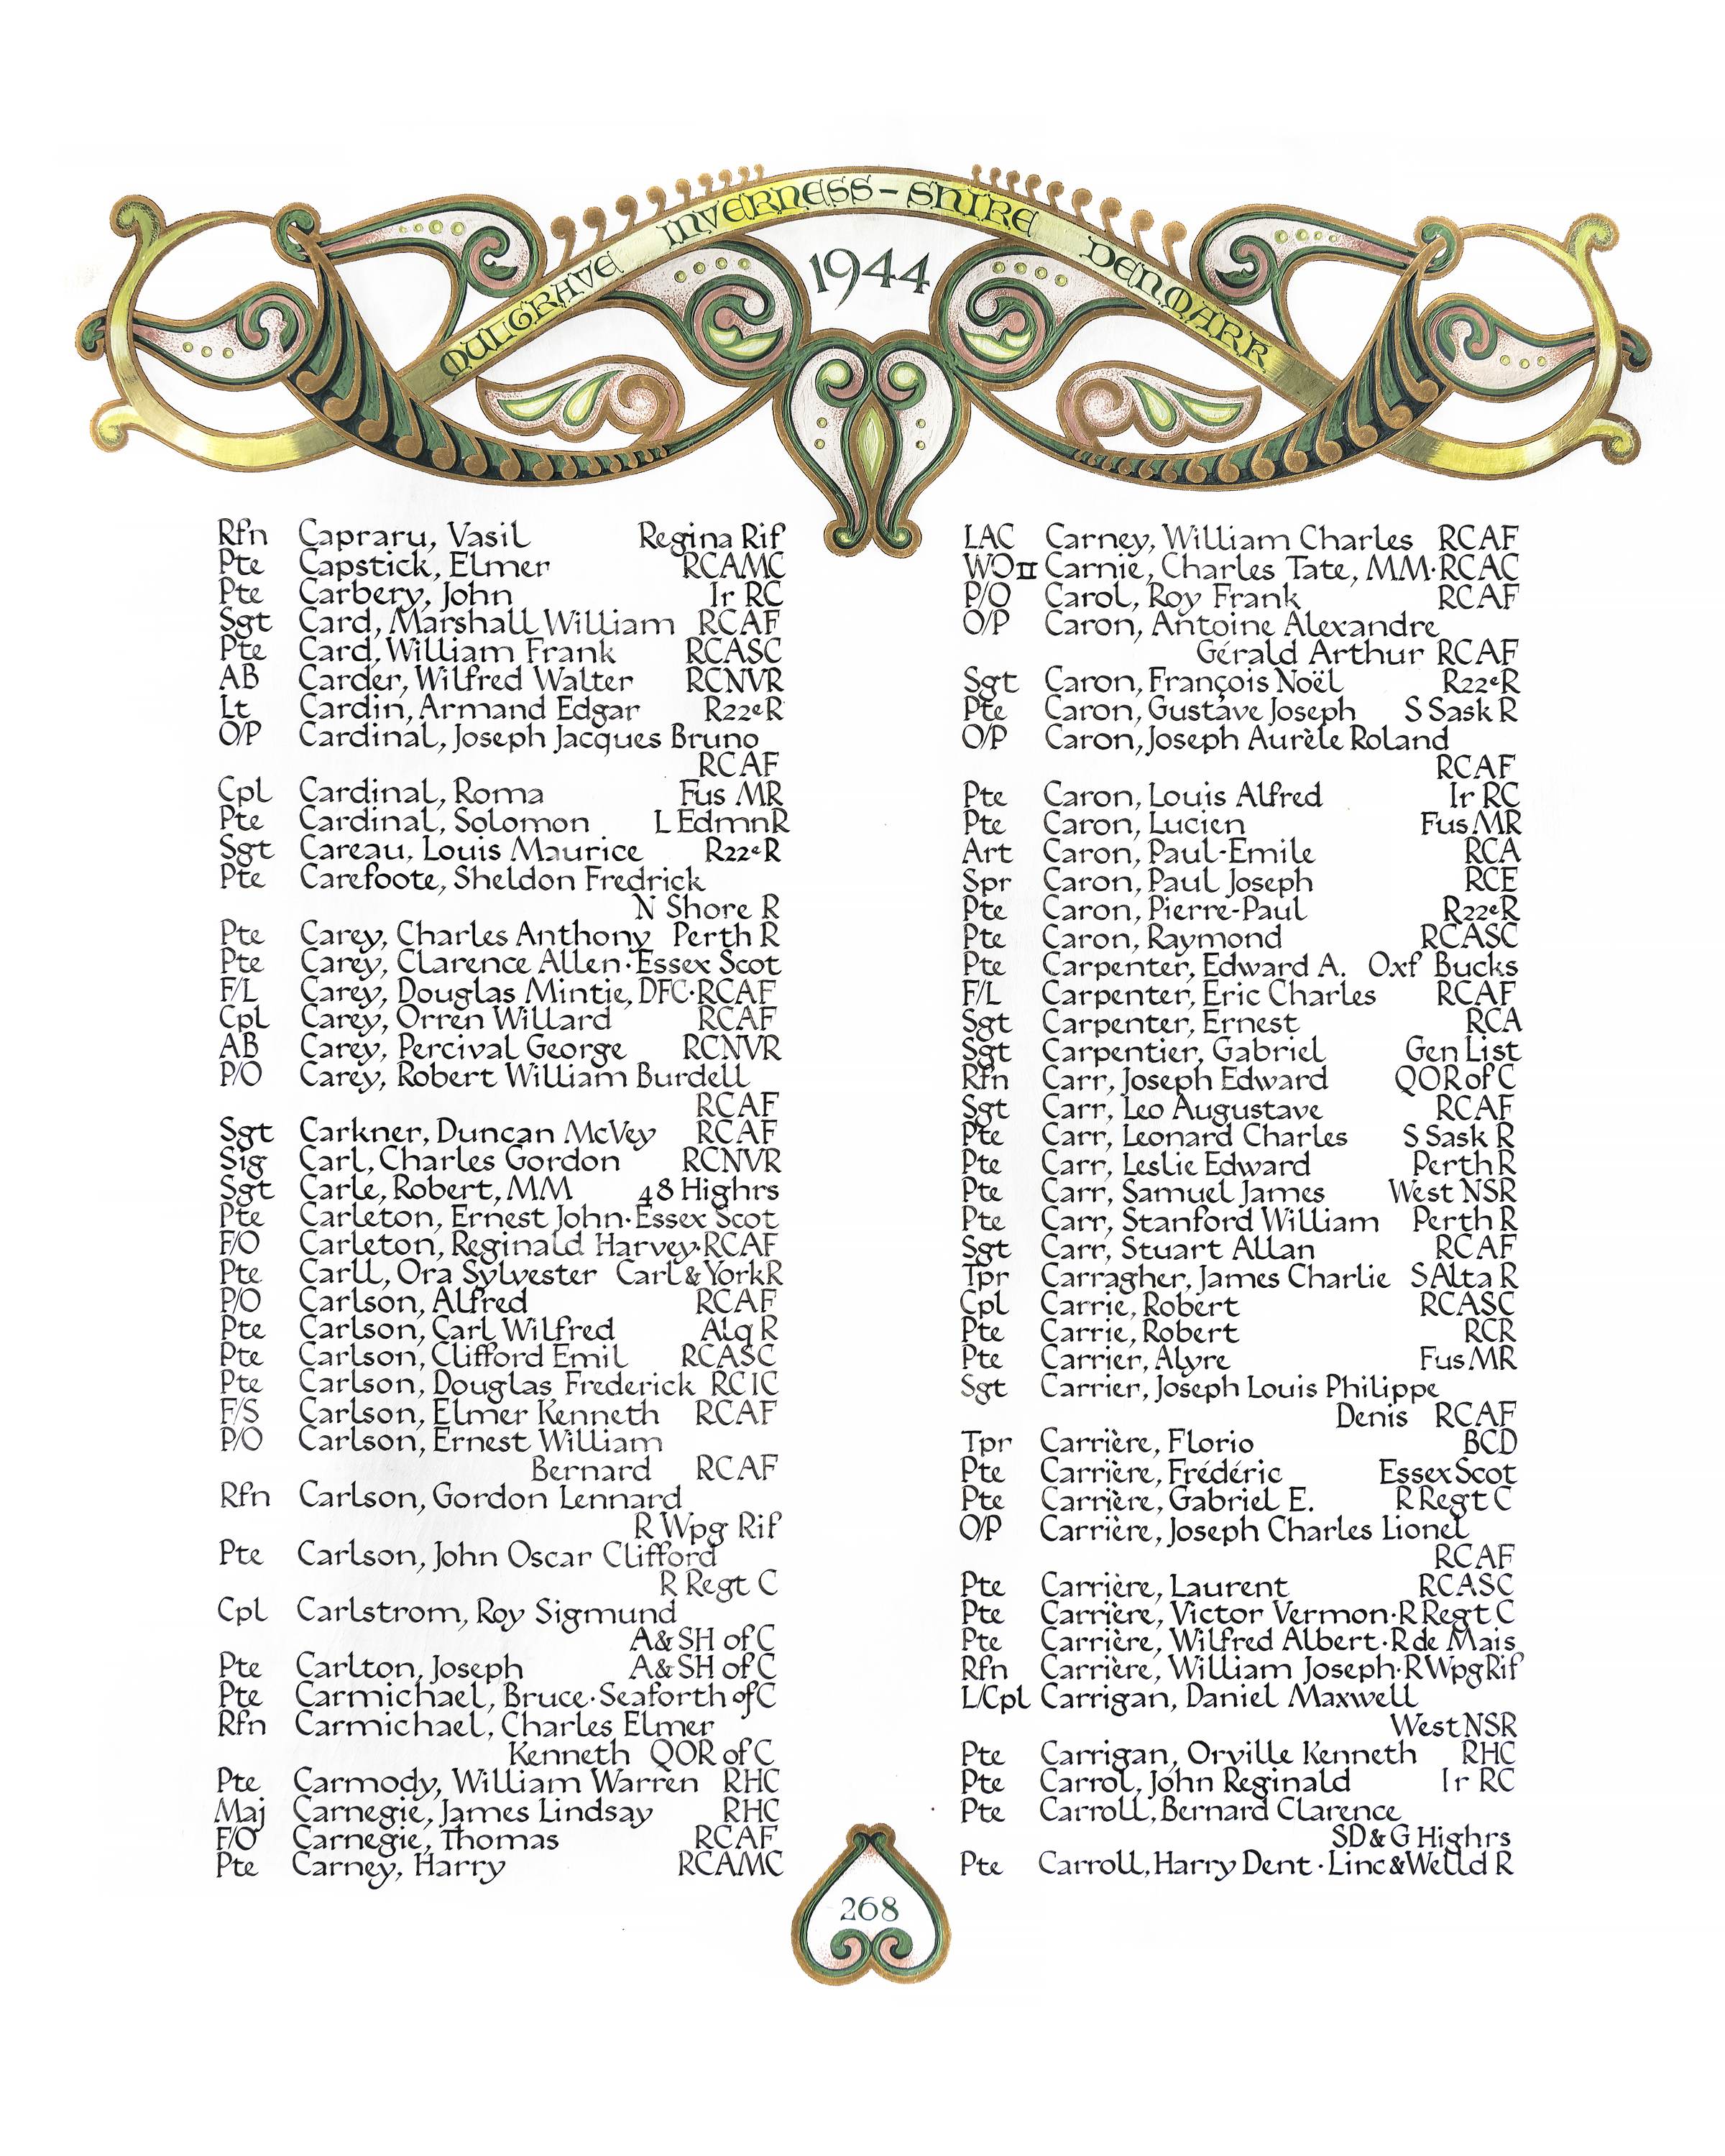 MULGRAVE INVERNESS-SHIRE DENMARK
1944
Rfn Capraru, Vasil Regina Rif
Pte Capstick, Elmer RCAMC
Pte Carbery, John Ir RC
Sgt Card, Marshall William RCAF
Pte Card, William Frank RCASC
AB Carder, Wilfred Walter RCNVR
Lt Cardin, Armand Edgar R22eR
O/P Cardinal, Joseph Jacques Bruno
RCAF
Cpl Cardinal, Roma Fus MR
Pte Cardinal, Solomon L EdmnR
Sgt Careau, Louis Maurice R22eR
Pte Carefoote, Sheldon Fredrick
N Shore R
Pte Carey, Charles Anthony Perth R
Pte Carey, Clarence Allen·Essex Scot
F/L Carey, Douglas Mintie, DFC·RCAF
Cpl Carey, Orren Willard RCAF
AB Carey, Percival George RCNVR
P/O Carey, Robert William Burdell
RCAF
Sgt Carkner, Duncan McVey RCAF
Sig Carl, Charles Gordon RCNVR
Sgt Carle, Robert, MM 48 Highrs
Pte Carleton, Ernest John·Essex Scot
F/O Carleton, Reginald Harvey·RCAF
Pte Carll, Ora Sylvester Carl & YorkR
P/O Carlson, Alfred RCAF
Pte Carlson, Carl Wilfred Alq R
Pte Carlson, Clifford Emil RCASC
Pte Carlson, Douglas Frederick RCIC
F/S Carlson, Elmer Kenneth RCAF
P/O Carlson, Ernest William
Bernard RCAF
Rfn Carlson, Gordon Lennard
R Wpg Rif
Pte Carlson, John Oscar Clifford
R Regt C
Cpl Carlstrom, Roy Sigmund
A & SH of C
Pte Carlton, Joseph A & SH of C
Pte Carmichael, Bruce·Seaforth of C
Rfn Carmichael, Charles Elmer
Kenneth QOR of C
Pte Carmody, William Warren RHC
Maj Carnegie, James Lindsay RHC
F/O Carnegie, Thomas RCAF
Pte Carney, Harry RCAMC
LAC Carney, William Charles RCAF
WO II Carnie, Charles Tate, MM·RCAC
P/O Carol, Roy Frank RCAF
O/P Caron, Antoine Alexandre
Gérald Arthur RCAF
Sgt Caron, François Noël R22eR
Pte Caron, Gustave Joseph S Sask R
O/P Caron, Joseph Aurèle Roland
RCAF
Pte Caron, Louis Alfred Ir RC
Pte Caron, Lucien Fus MR
Art Caron, Paul-Emile RCA
Spr Caron, Paul Joseph RCE
Pte Caron, Pierre-Paul R22eR
Pte Caron, Raymond RCASC
Pte Carpenter, Edward A. Oxf Bucks
F/L Carpenter, Eric Charles RCAF
Sgt Carpenter, Ernest RCA
Sgt Carpentier, Gabriel Gen List
Rfn Carr, Joseph Edward QOR of C
Sgt Carr, Leo Augustave RCAF
Pte Carr, Leonard Charles S Sask R
Pte Carr, Leslie Edward Perth R
Pte Carr, Samuel James West NSR
Pte Carr, Stanford William Perth R
Sgt Carr, Stuart Allan RCAF
Tpr Carragher, James Charlie S Alta R
Cpl Carrie, Robert RCASC
Pte Carrie, Robert RCR
Pte Carrier, Alyre Fus MR
Sgt Carrier, Joseph Louis Philippe
Denis RCAF
Tpr Carrière, Florio BCD
Pte Carrière, Frédéric Essex Scot
Pte Carrière, Gabriel E. R Regt C
O/P Carrière, Joseph Charles Lionel
RCAF
Pte Carrière, Laurent RCASC
Pte Carrière, Victor Vermon·R Regt C
Pte Carrière, Wilfred Albert·R de Mais
Rfn Carrière, William Joseph·R Wpg Rif
L/Cpl Carrigan, Daniel Maxwell
West NSR
Pte Carrigan, Orville Kenneth RHC
Pte Carrol, John Reginald Ir RC
Pte Carroll, Bernard Clarence
SD & G Highrs
Pte Carroll, Harry Dent·Linc & Welld R
268